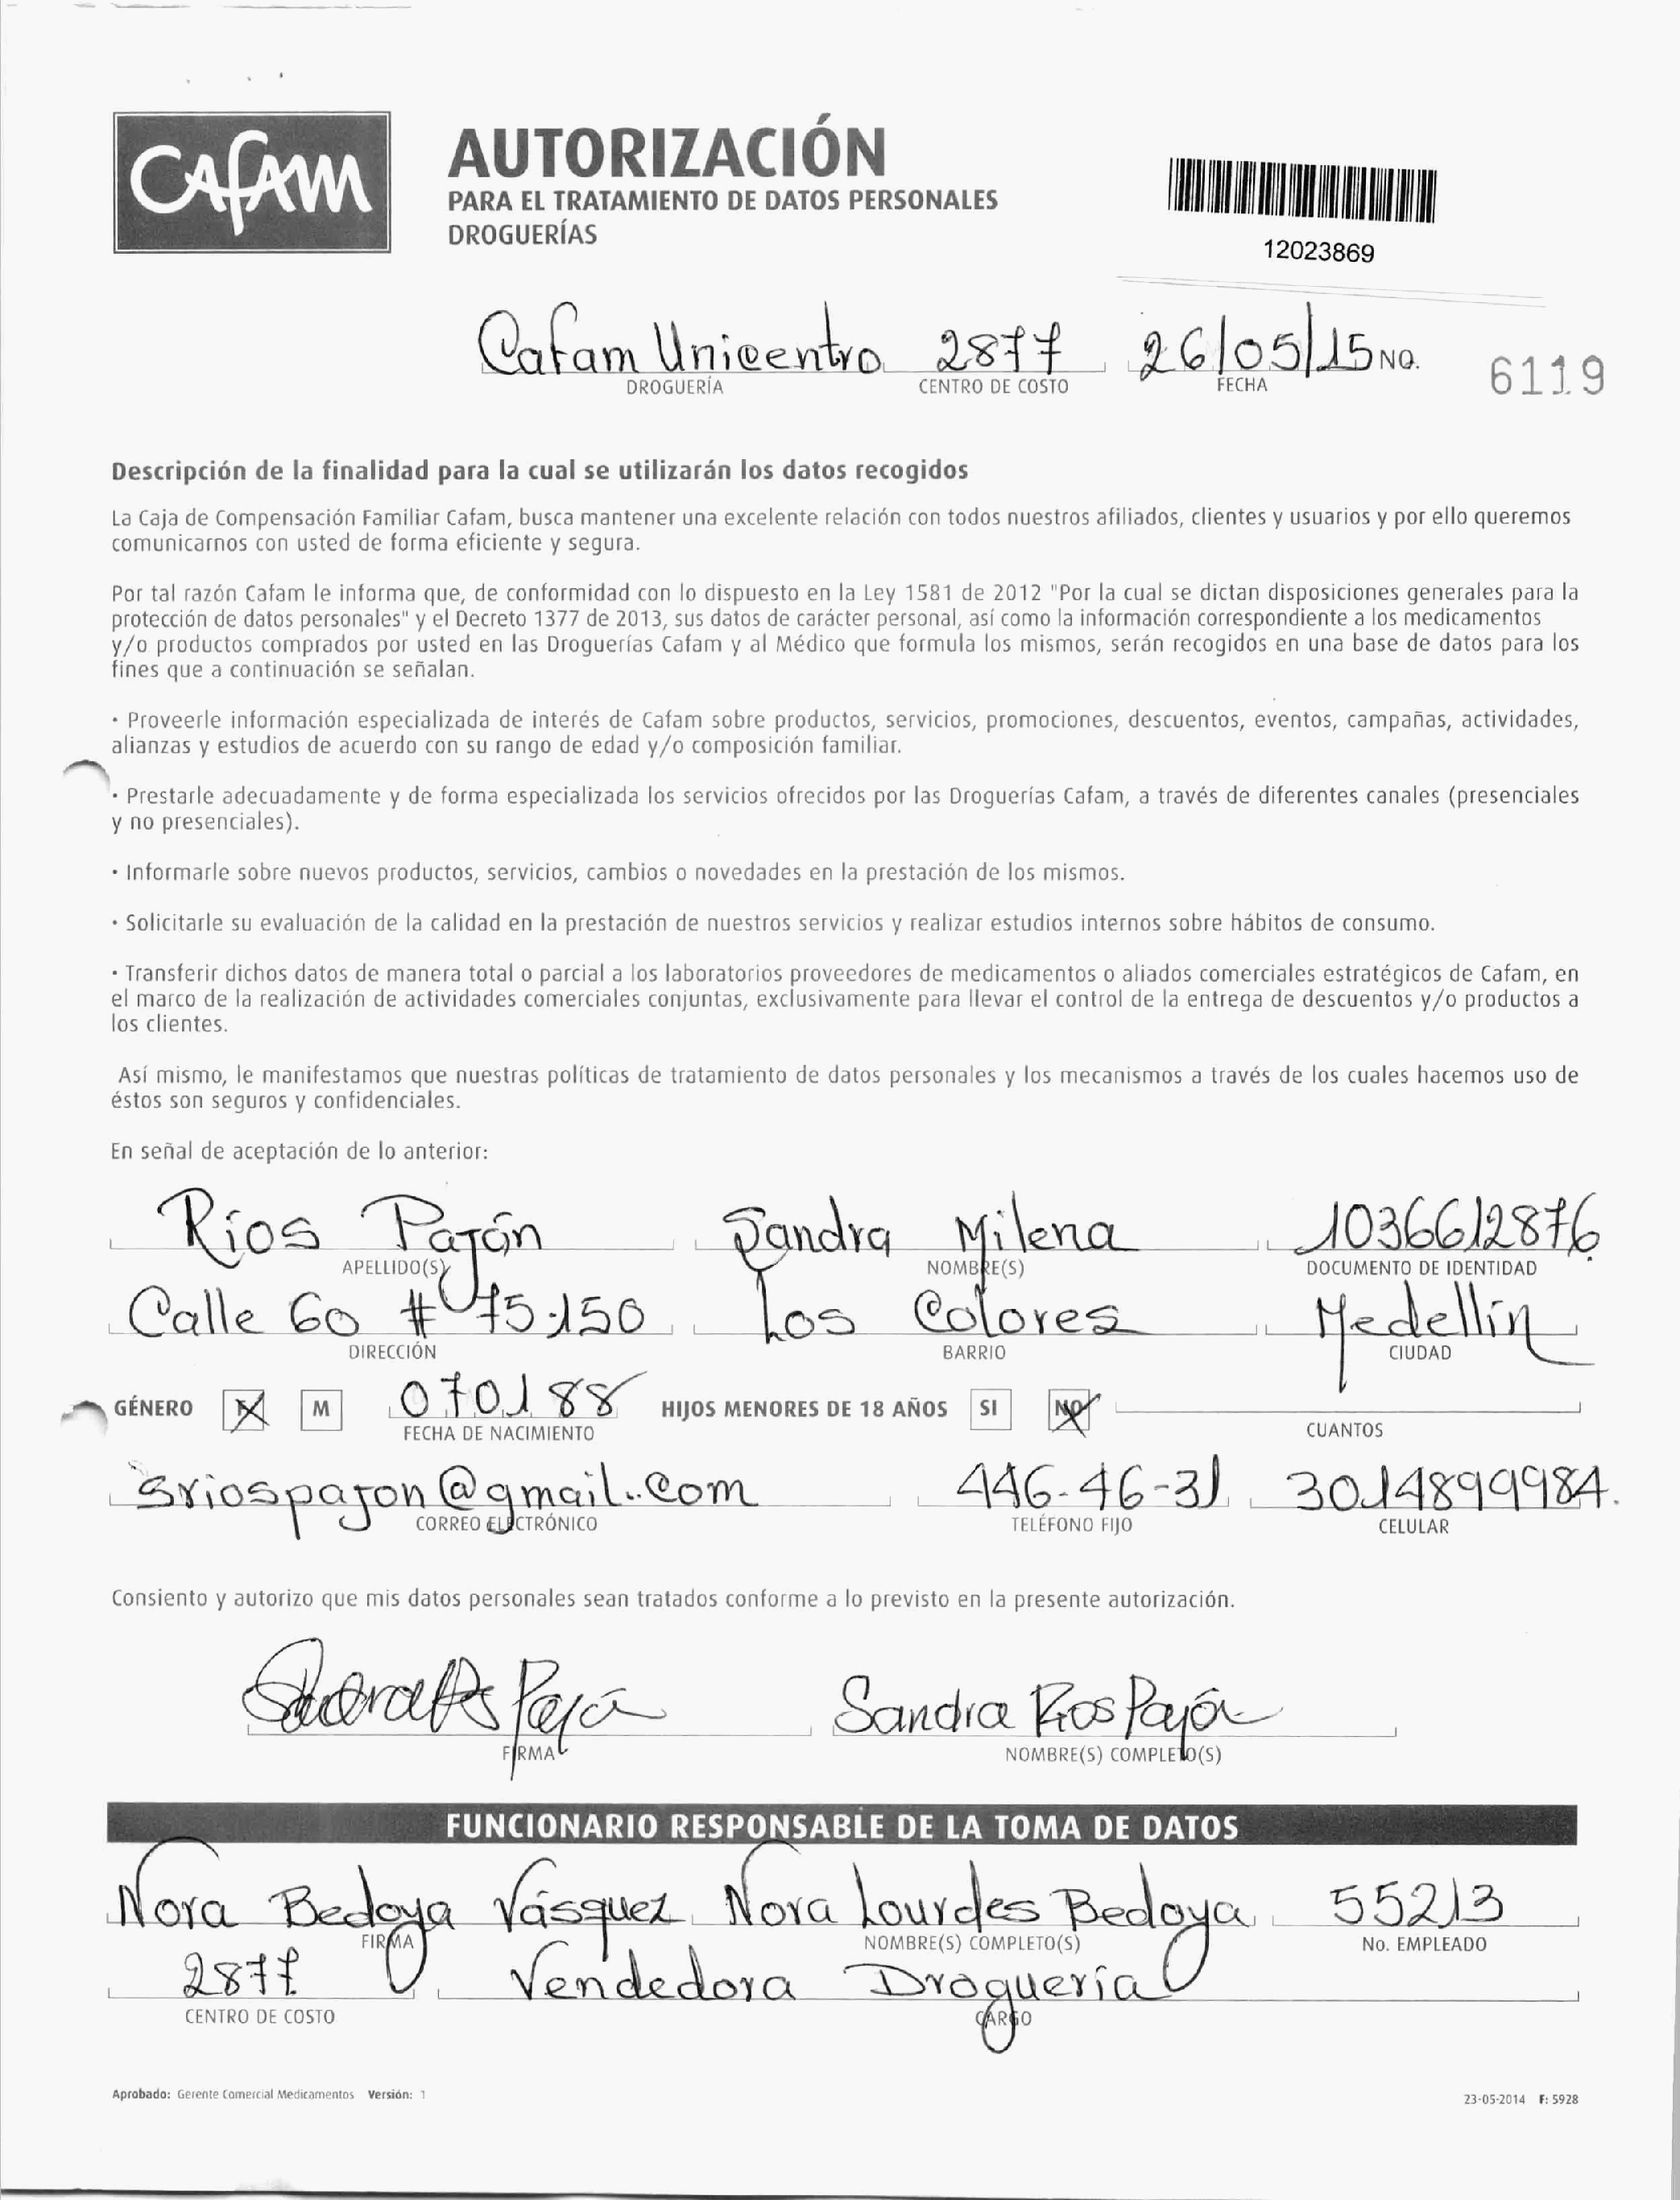 CAFAM
AUTORIZACIÓN
PARA EL TRATAMIENTO DE DATOS PERSONALES
DROGUERÍAS
12023869
Cafam Unicentro 2877 26/05/15 NO. 6119
DROGUERÍA CENTRO DE COSTO FECHA
Descripción de la finalidad para la cual se utilizarán los datos recogidos
La Caja de Compensación Familiar Cafam, busca mantener una excelente relación con todos nuestros afiliados, clientes y usuarios y por ello queremos
comunicarnos con usted de forma eficiente y segura.
Por tal razón Cafam le informa que, de conformidad con lo dispuesto en la Ley 1581 de 2012 "Por la cual se dictan disposiciones generales para la
protección de datos personales" y el Decreto 1377 de 2013, sus datos de carácter personal, así como la información correspondiente a los medicamentos
y/o productos comprados por usted en las Droguerías Cafam y al Médico que formula los mismos, serán recogidos en una base de datos para los
fines que a continuación se señalan.
• Proveerle información especializada de interés de Cafam sobre productos, servicios, promociones, descuentos, eventos, campañas, actividades,
alianzas y estudios de acuerdo con su rango de edad y/o composición familiar.
• Prestarle adecuadamente y de forma especializada los servicios ofrecidos por las Droguerías Cafam, a través de diferentes canales (presenciales
y no presenciales).
• Informarle sobre nuevos productos, servicios, cambios o novedades en la prestación de los mismos.
• Solicitarle su evaluación de la calidad en la prestación de nuestros servicios y realizar estudios internos sobre hábitos de consumo.
• Transferir dichos datos de manera total o parcial a los laboratorios proveedores de medicamentos o aliados comerciales estratégicos de Cafam, en
el marco de la realización de actividades comerciales conjuntas, exclusivamente para llevar el control de la entrega de descuentos y/o productos a
los clientes.
Así mismo, le manifestamos que nuestras políticas de tratamiento de datos personales y los mecanismos a través de los cuales hacemos uso de
éstos son seguros y confidenciales.
En señal de aceptación de lo anterior:
Ríos Pajón Sandra Milena 1036612876
APELLIDO(S) NOMBRE(S) DOCUMENTO DE IDENTIDAD
Calle 60 # 75-150 Los Colores Medellín
DIRECCIÓN BARRIO CIUDAD
GÉNERO F M 070188 HIJOS MENORES DE 18 AÑOS SI NO
FECHA DE NACIMIENTO CUANTOS
sriospajon@gmail.com 446-46-31 3014899984.
CORREO ELECTRÓNICO TELÉFONO FIJO CELULAR
Consiento y autorizo que mis datos personales sean tratados conforme a lo previsto en la presente autorización.
Sandra Ríos Pajón
FIRMA NOMBRE(S) COMPLETO(S)
FUNCIONARIO RESPONSABLE DE LA TOMA DE DATOS
Nora Bedoya Vásquez Nora Lourdes Bedoya 55213
FIRMA NOMBRE(S) COMPLETO(S) No. EMPLEADO
2877 Vendedora Droguería
CENTRO DE COSTO CARGO
Aprobado: Gerente Comercial Medicamentos Versión: 1
23-05-2014 F: 5928